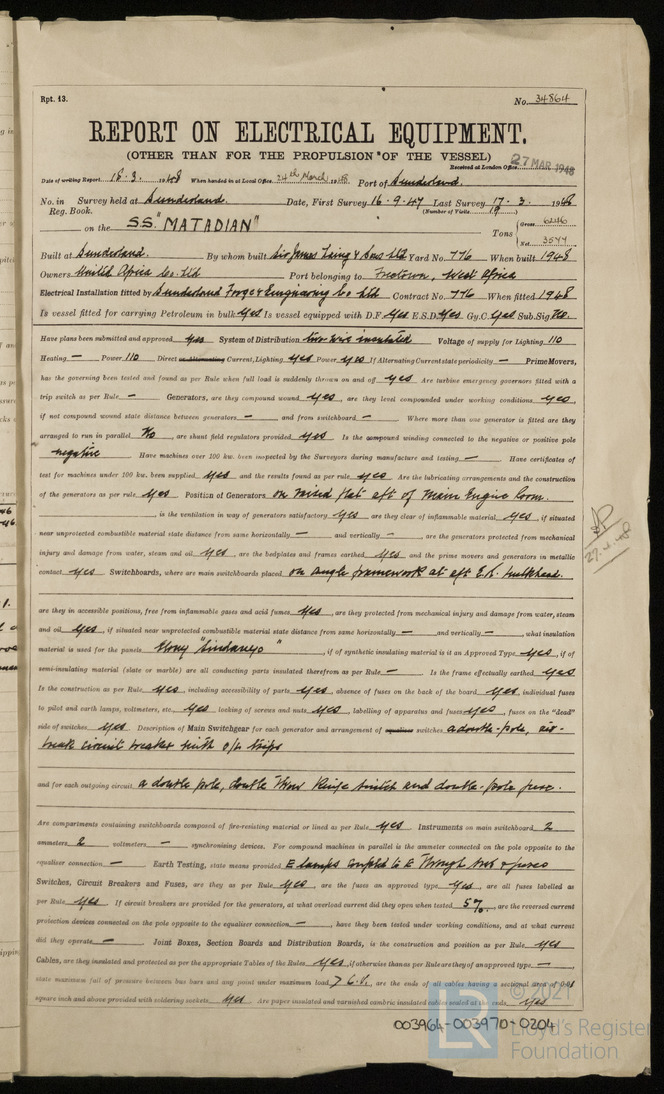 Rpt. 13.
No. 34864
REPORT ON ELECTRICAL EQUIPMENT.
(OTHER THAN FOR THE PROPULSION OF THE VESSEL)
27 MAR 1948
Received at London Office
Date of writing Report 18.3. 1948 When handed in at Local Office 24th March 1948 Port of Sunderland.
No. in Survey held at Sunderland. Date, First Survey 16.9.47 Last Survey 17.3. 1948
Reg. Book. (Number of Visits 19)
on the SS. "MATADIAN" Tons { Gross 6246
Net 3577
Built at Sunderland. By whom built Sir James Laing & Sons Ltd Yard No. 776 When built 1948
Owners United Africa Co. Ltd Port belonging to Freetown, West Africa
Electrical Installation fitted by Sunderland Forge & Engineering Co Ltd Contract No. 776 When fitted 1948
Is vessel fitted for carrying Petroleum in bulk Yes Is vessel equipped with D.F. Yes E.S.D. Yes Gy.C. Yes Sub.Sig. No.
Have plans been submitted and approved Yes System of Distribution two wire insulated Voltage of supply for Lighting 110
Heating — Power 110 Direct or Alternating Current, Lighting Yes Power Yes If Alternating Current state periodicity — Prime Movers,
has the governing been tested and found as per Rule when full load is suddenly thrown on and off Yes Are turbine emergency governors fitted with a
trip switch as per Rule — Generators, are they compound wound Yes, are they level compounded under working conditions Yes,
if not compound wound state distance between generators — and from switchboard — Where more than one generator is fitted are they
arranged to run in parallel No, are shunt field regulators provided Yes Is the compound winding connected to the negative or positive pole
negative Have machines over 100 kw. been inspected by the Surveyors during manufacture and testing — Have certificates of
test for machines under 100 kw. been supplied Yes and the results found as per rule Yes Are the lubricating arrangements and the construction
of the generators as per rule Yes Position of Generators on raised flat aft of Main Engine Room.
, is the ventilation in way of generators satisfactory Yes are they clear of inflammable material Yes, if situated
near unprotected combustible material state distance from same horizontally — and vertically —, are the generators protected from mechanical
injury and damage from water, steam and oil Yes, are the bedplates and frames earthed Yes and the prime movers and generators in metallic
contact Yes Switchboards, where are main switchboards placed on angle framework at aft E.R. bulkhead.
are they in accessible positions, free from inflammable gases and acid fumes Yes, are they protected from mechanical injury and damage from water, steam
and oil Yes, if situated near unprotected combustible material state distance from same horizontally — and vertically —, what insulation
material is used for the panels Ebony "Sindanyo", if of synthetic insulating material is it an Approved Type Yes, if of
semi-insulating material (slate or marble) are all conducting parts insulated therefrom as per Rule — Is the frame effectually earthed Yes
Is the construction as per Rule Yes, including accessibility of parts Yes absence of fuses on the back of the board Yes, individual fuses
to pilot and earth lamps, voltmeters, etc. Yes locking of screws and nuts Yes, labelling of apparatus and fuses Yes, fuses on the "dead"
side of switches Yes Description of Main Switchgear for each generator and arrangement of equaliser switches a double-pole, air-
break circuit breaker with o/l trips
and for each outgoing circuit a double pole, double throw knife switch and double-pole fuse.
Are compartments containing switchboards composed of fire-resisting material or lined as per Rule Yes Instruments on main switchboard 2
ammeters 2 voltmeters — synchronising devices. For compound machines in parallel is the ammeter connected on the pole opposite to the
equaliser connection — Earth Testing, state means provided E lamps coupled to E through & fuses
Switches, Circuit Breakers and Fuses, are they as per Rule Yes, are the fuses an approved type Yes, are all fuses labelled as
per Rule Yes If circuit breakers are provided for the generators, at what overload current did they open when tested 5%, are the reversed current
protection devices connected on the pole opposite to the equaliser connection —, have they been tested under working conditions, and at what current
did they operate — Joint Boxes, Section Boards and Distribution Boards, is the construction and position as per Rule Yes
Cables, are they insulated and protected as per the appropriate Tables of the Rules Yes, if otherwise than as per Rule are they of an approved type —,
state maximum fall of pressure between bus bars and any point under maximum load 7 , are the ends of all cables having a sectional area of 0.01
square inch and above provided with soldering sockets Yes Are paper insulated and varnished cambric insulated cables sealed at the ends Yes
27.4.48
003964-003970-0204
© 2021
LR
Lloyd's Register
Foundation